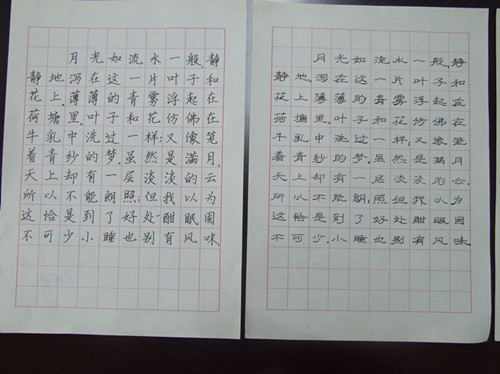 月光如流水一般静
静地泻在这一片叶子和
花上。薄薄的青雾浮起在
荷塘里。叶子和花仿佛在
牛乳中洗过一样;又像笼
着青纱的梦。虽然是满月,
天上却有一层淡淡的云
所以不能朗照;但我以为
这恰是到了好处酣眠固
不可少,小睡也别有风味
月光如流水一般静
静地泻在这一片叶子和
花上。薄薄的青雾浮起在
荷塘里。叶子和花仿佛在
牛乳中洗过一样;又像笼
着青纱的梦。虽然是满月,
天上却有一层淡淡的云
所以不能朗照;但我以为
这恰是到了好处酣眠固
不可少,小睡也别有风味